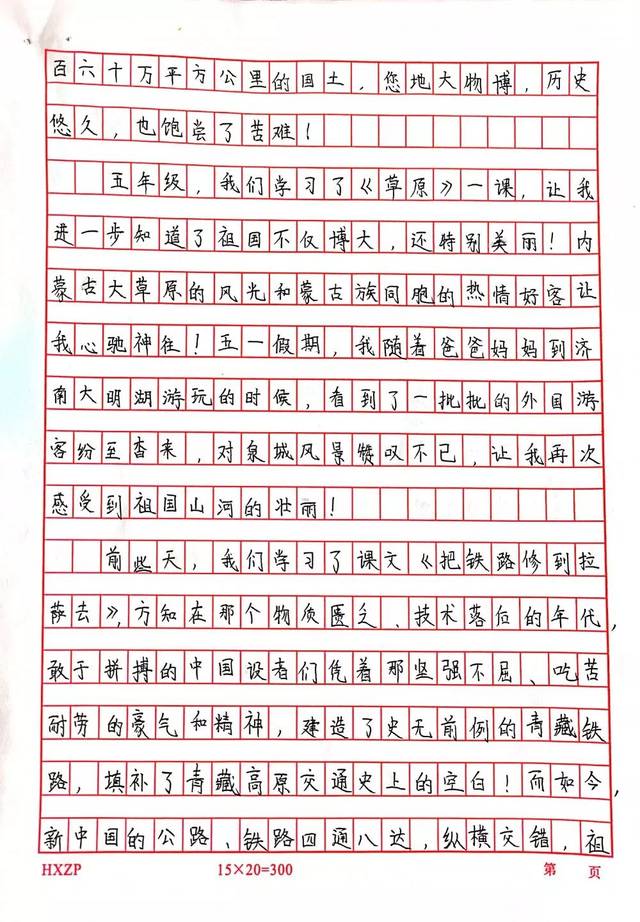 百六十万平方公里的国土，您地大物博，历史
悠久，也饱尝了苦难！
五年级，我们学习了《草原》一课，让我
进一步知道了祖国不仅博大，还特别美丽！内
蒙古大草原的风光和蒙古族同胞的热情好客让
我心驰神往！五一假期，我随着爸爸妈妈到济
南大明湖游玩的时候，看到了一批批的外国游
客纷至杳来，对泉城风景赞叹不已，让我再次
感受到祖国山河的壮丽！
前些天，我们学习了课文《把铁路修到拉
萨去》，方知在那个物质匮乏、技术落后的年代，
敢于拼搏的中国设者们凭着那坚强不屈、吃苦
耐劳的豪气和精神，建造了史无前例的青藏铁
路，填补了青藏高原交通史上的空白！而如今，
新中国的公路、铁路四通八达，纵横交错，祖
HXZP 15×20=300 第 页